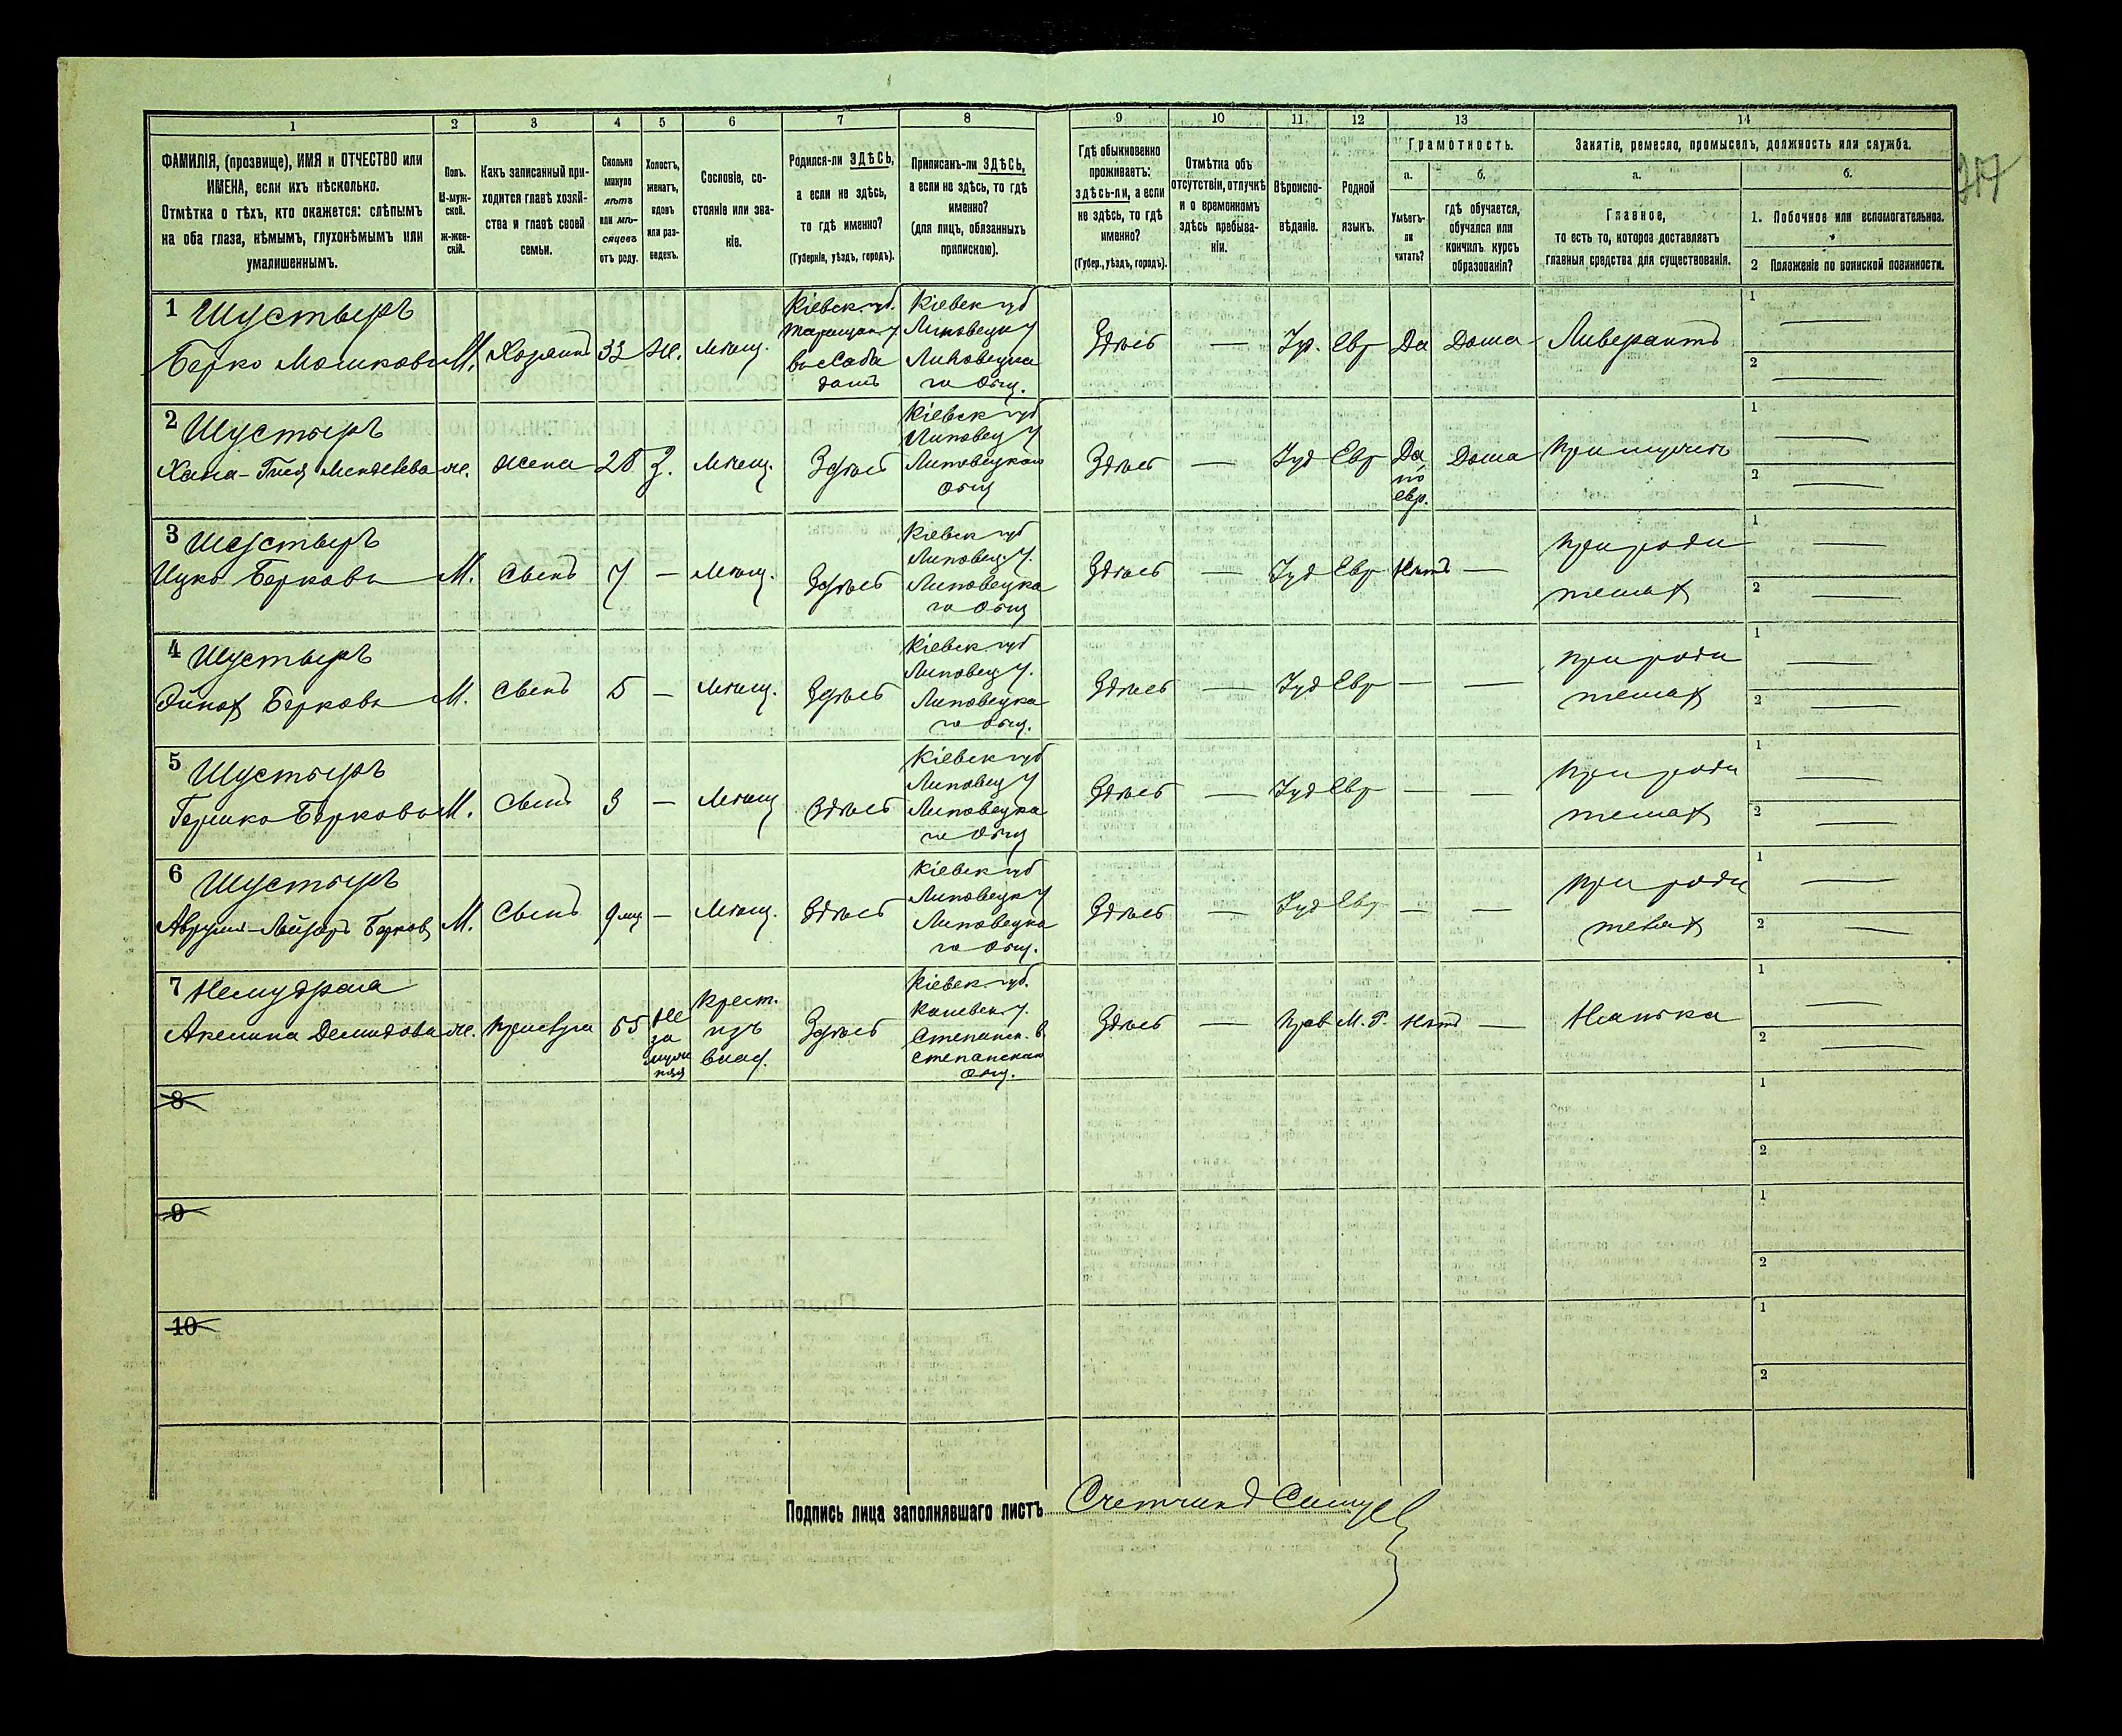 1 2 3 4 5 6 7 8 9 10 11 12 13 14
ФАМИЛІЯ, (прозвище), ИМЯ и ОТЧЕСТВО или
ИМЕНА, если ихъ нѣсколько.
Отмѣтка о тѣхъ, кто окажется: слѣпымъ
на оба глаза, нѣмымъ, глухонѣмымъ или
умалишеннымъ.
Полъ.
М-муж-
ской.
ж-жен-
скій.
Какъ записанный при-
ходится главѣ хозяй-
ства и главѣ своей
семьи.
Сколько
минуло
лѣтъ
или мѣ-
сяцевъ
отъ роду.
Холостъ,
женатъ,
вдовъ
или раз-
веденъ.
Сословіе, со-
стояніе или зва-
ніе.
Родился-ли ЗДѢСЬ,
а если не здѣсь,
то гдѣ именно?
(Губернія, уѣздъ, городъ).
Приписанъ-ли ЗДѢСЬ,
а если не здѣсь, то гдѣ
именно?
(для лицъ, обязанныхъ
припискою).
Гдѣ обыкновенно
проживаетъ:
здѣсь-ли, а если
не здѣсь, то гдѣ
именно?
(Губер., уѣздъ, городъ).
Отмѣтка объ
отсутствіи, отлучкѣ
и о временномъ
здѣсь пребыва-
ніи.
Вѣроиспо-
вѣданіе.
Родной
языкъ.
Грамотность.
а.
Умѣетъ-
ли
читать?
б.
гдѣ обучается,
обучался или
кончилъ курсъ
образованія?
Занятіе, ремесло, промыселъ, должность или служба.
а.
Главное,
то есть то, которое доставляетъ
главныя средства для существованія.
б.
1. Побочное или вспомогательное.
2 Положеніе по воинской повинности.
317
1 Шустыръ
Берко Мошковъ М. Хозяинъ 33 Ж. Мѣщ.
Кіевск. губ.
Таращан. у
Кіевск губ
Липовецк у
Липовецка
го Общ.
Здѣсь — Іуд. Евр Да Дома Ливерантъ
1 —
2 —
2 Шустыръ
Хана- Менделева ж. жена 28 З. Мѣщ. Здѣсь
Кіевск губ
Липовец у
Липовецкаго
Общ
Здѣсь — Іуд Евр
Да,
по
евр.
Дома При мужѣ
1 —
2 —
3 Шустыръ
Ицко Берковъ М. Сынъ 7 — Мѣщ. Здѣсь
Кіевск губ
Липовец. у.
Липовецка
го Общ
Здѣсь — Іуд Евр Нѣтъ —
При роди
теляхъ
1 —
2 —
4 Шустыръ
Эйнох Берковъ М. Сынъ 5 — Мѣщ. Здѣсь
Кіевск губ
Липовец у.
Липовецка
го Общ.
Здѣсь — Іуд Евр — —
При роди
теляхъ
1 —
2 —
5 Шустыръ
Гершко Берковъ М. Сынъ 3 — Мѣщ Здѣсь
Кіевск губ
Липовец у
Липовецка
го Общ
Здѣсь — Іуд Евр — —
При роди
теляхъ
1 —
2 —
6 Шустыръ
Аврумъ-Лейзоръ Берков М. Сынъ 9 мц — Мѣщ. Здѣсь
Кіевск губ
Липовецк у
Липовецка
го Общ.
Здѣсь — Іуд Евр — —
При роди
теляхъ
1 —
2 —
7 Немудрая
Акелина Демидова ж. Прислуга 55
Не
за
муж
няя
Крест.
изъ
влад.
Здѣсь
Кіевск. губ.
Каневск. у.
Степанск. в.
Степанскаго
Общ.
Здѣсь — Прав М. Р. Нѣтъ — Нянька
1 —
2 —
8
1
2
9
1
2
10
1
2
Подпись лица заполнявшаго листъ Счетчикъ